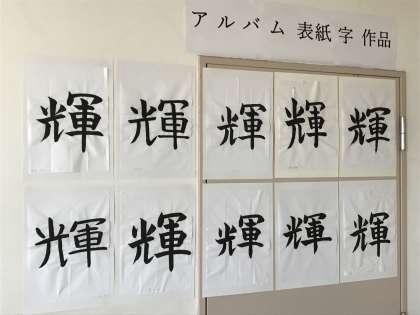 アルバム 表紙 字 作品
輝 輝 輝 輝 輝
輝 輝 輝 輝 輝